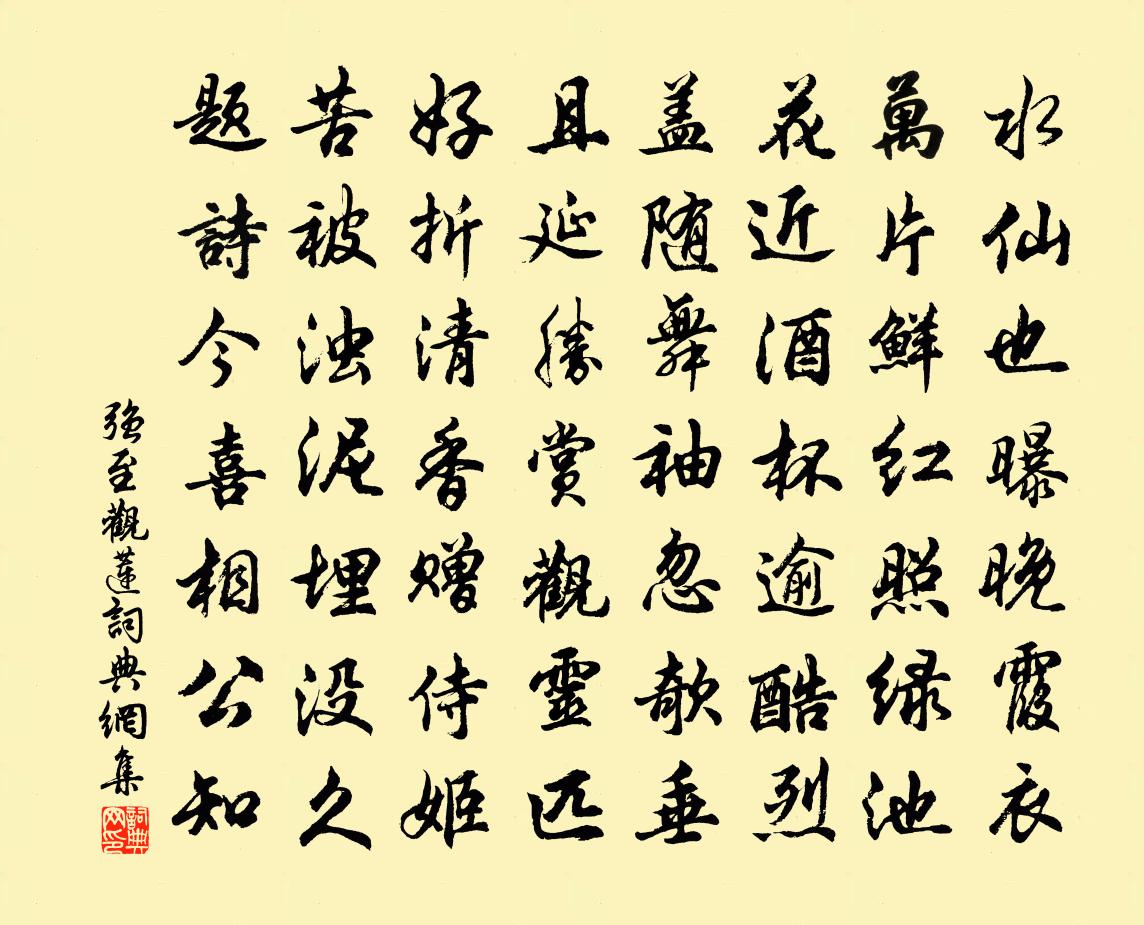 水仙也曝晚霞衣
萬片鮮红照绿池
花近酒杯逾酷烈
盖随舞袖忽欹垂
且延勝赏觀靈匹
好折清香赠侍姬
苦被浊泥埋没久
题詩今喜相公知
强至觀蓮詞典網集
詞典网印